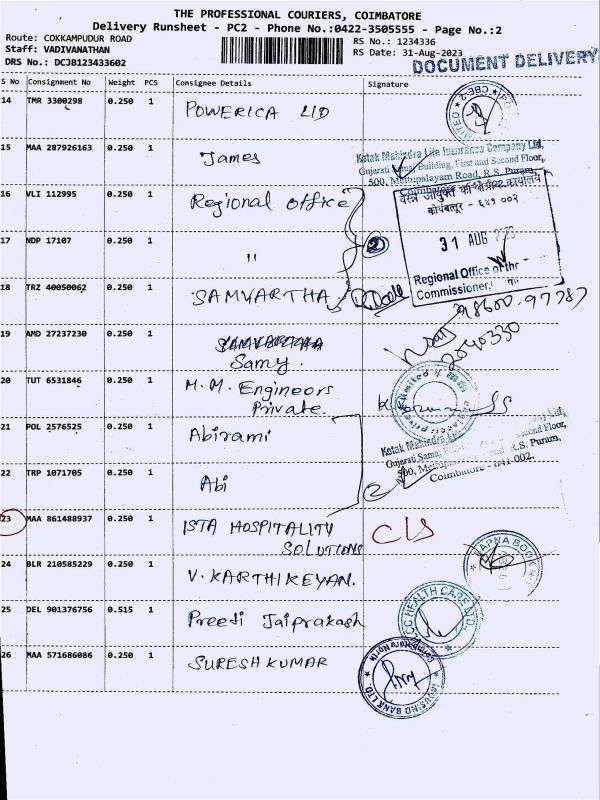 THE PROFESSIONAL COURIERS, COIMBATORE
Delivery Runsheet - PC2 - Phone No.:0422-3505555 - Page No.:2
Route: COKKAMPUDUR ROAD
Staff: VADIVANATHAN
DRS No.: DCJB123433602
RS No.: 1234336
RS Date: 31-Aug-2023
DOCUMENT DELIVERY
S No Consignment No Weight PCS Consignee Details Signature
14 TMR 3300298 0.250 1 POWERICA LTD
CBE-2
15 MAA 287926163 0.250 1 James
Kotak Mahindra Life Insurance Company Ltd,
Gujarati Samaj Building, First and Second Floor,
500, Mettupalayam Road, R.S. Puram,
Coimbatore
16 VLI 112995 0.250 1 Regional Office
कोयंबतूर - ६४१ ००२
17 NDP 17107 0.250 1 "
2
31 AUG
Regional Office of the
Commissioner,
18 TRZ 40050062 0.250 1 SAMVARTHA
98600-97787
19 AMD 27237230 0.250 1
Samy.
2040330
20 TUT 6531846 0.250 1 M.M. Engineers
Private.
21 POL 2576525 0.250 1 Abirami
Kotak Mahindra
Ltd,
Gujarati Samaj Second Floor,
500, R.S. Puram,
Coimbatore - 641 002.
22 TRP 1071705 0.250 1 Abi
23 MAA 861488937 0.250 1 ISTA HOSPITALITY
SOLUTIONS
C/S
24 BLR 210585229 0.250 1 V. KARTHIKEYAN.
SAPNA BOOK
25 DEL 901376756 0.515 1 Preeti Jaiprakash
HEALTH CARE LTD.
26 MAA 571686086 0.250 1 SURESH KUMAR
Coimbatore North
INDUSIND BANK LTD.